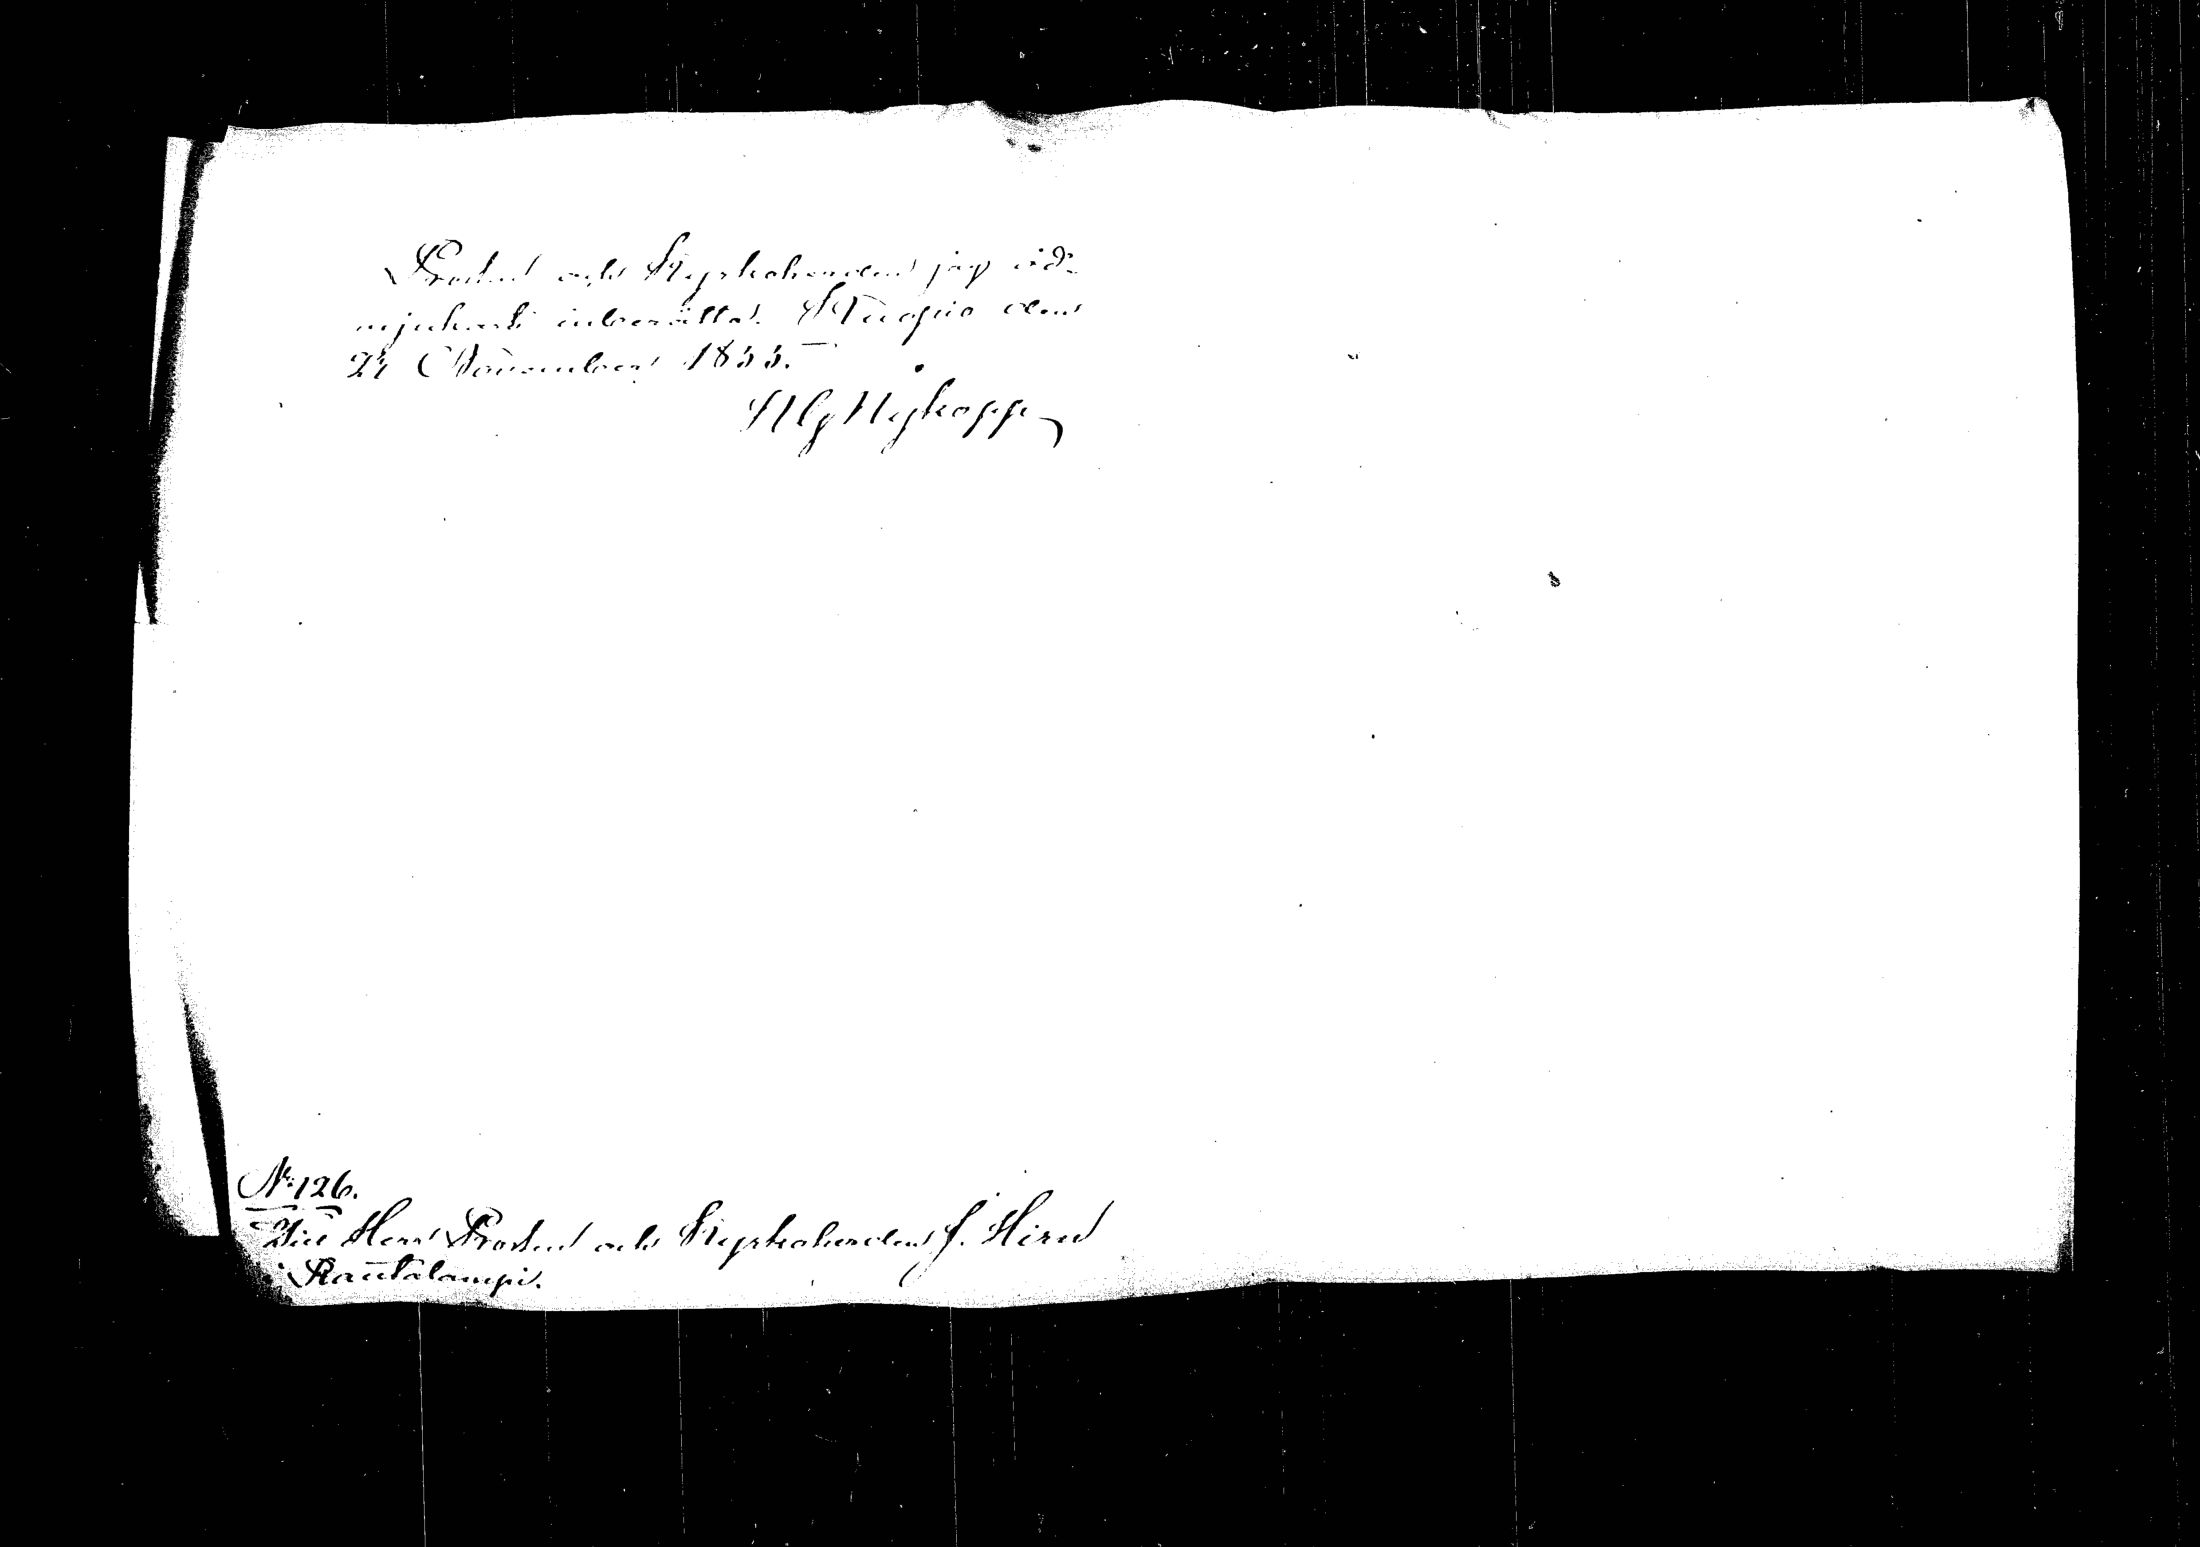 Prosten och Kyrkoherden jag öd-
mjukast inberätta. Kuopio den
27 November 1855.
Nykopp
No 126.
Till Herr Prosten och Kyrkoherden J. Hirn
i Rautalampi.